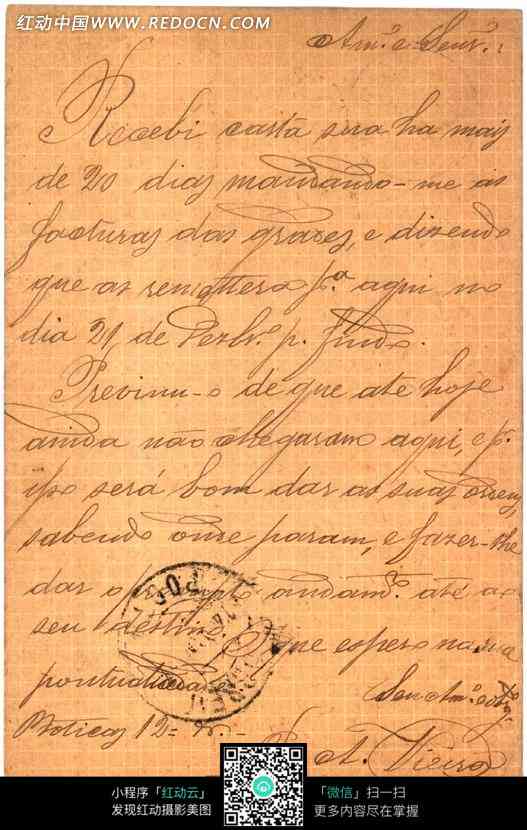 红动中国 WWW.REDOCN.COM
Am.º e Senr.:
Recebi carta sua ha mais
de 20 dias mandando-me as
facturas das grades, e dizendo
que as remettera p.ª aqui no
dia 21, de Dezbr.º p. findo.
Previnu-o de que até hoje
ainda não chegaram aqui, e p.
isso será bom dar as suas ordens,
sabendo onde param, e fazer-lhe
dar o prompto andam.to até ao
seu destino. O que espero na sua
pontualidade
Boticas 12=
Seu Am.º
A. Vieira
小程序「红动云」
发现红动摄影美图
「微信」扫一扫
更多内容尽在掌握